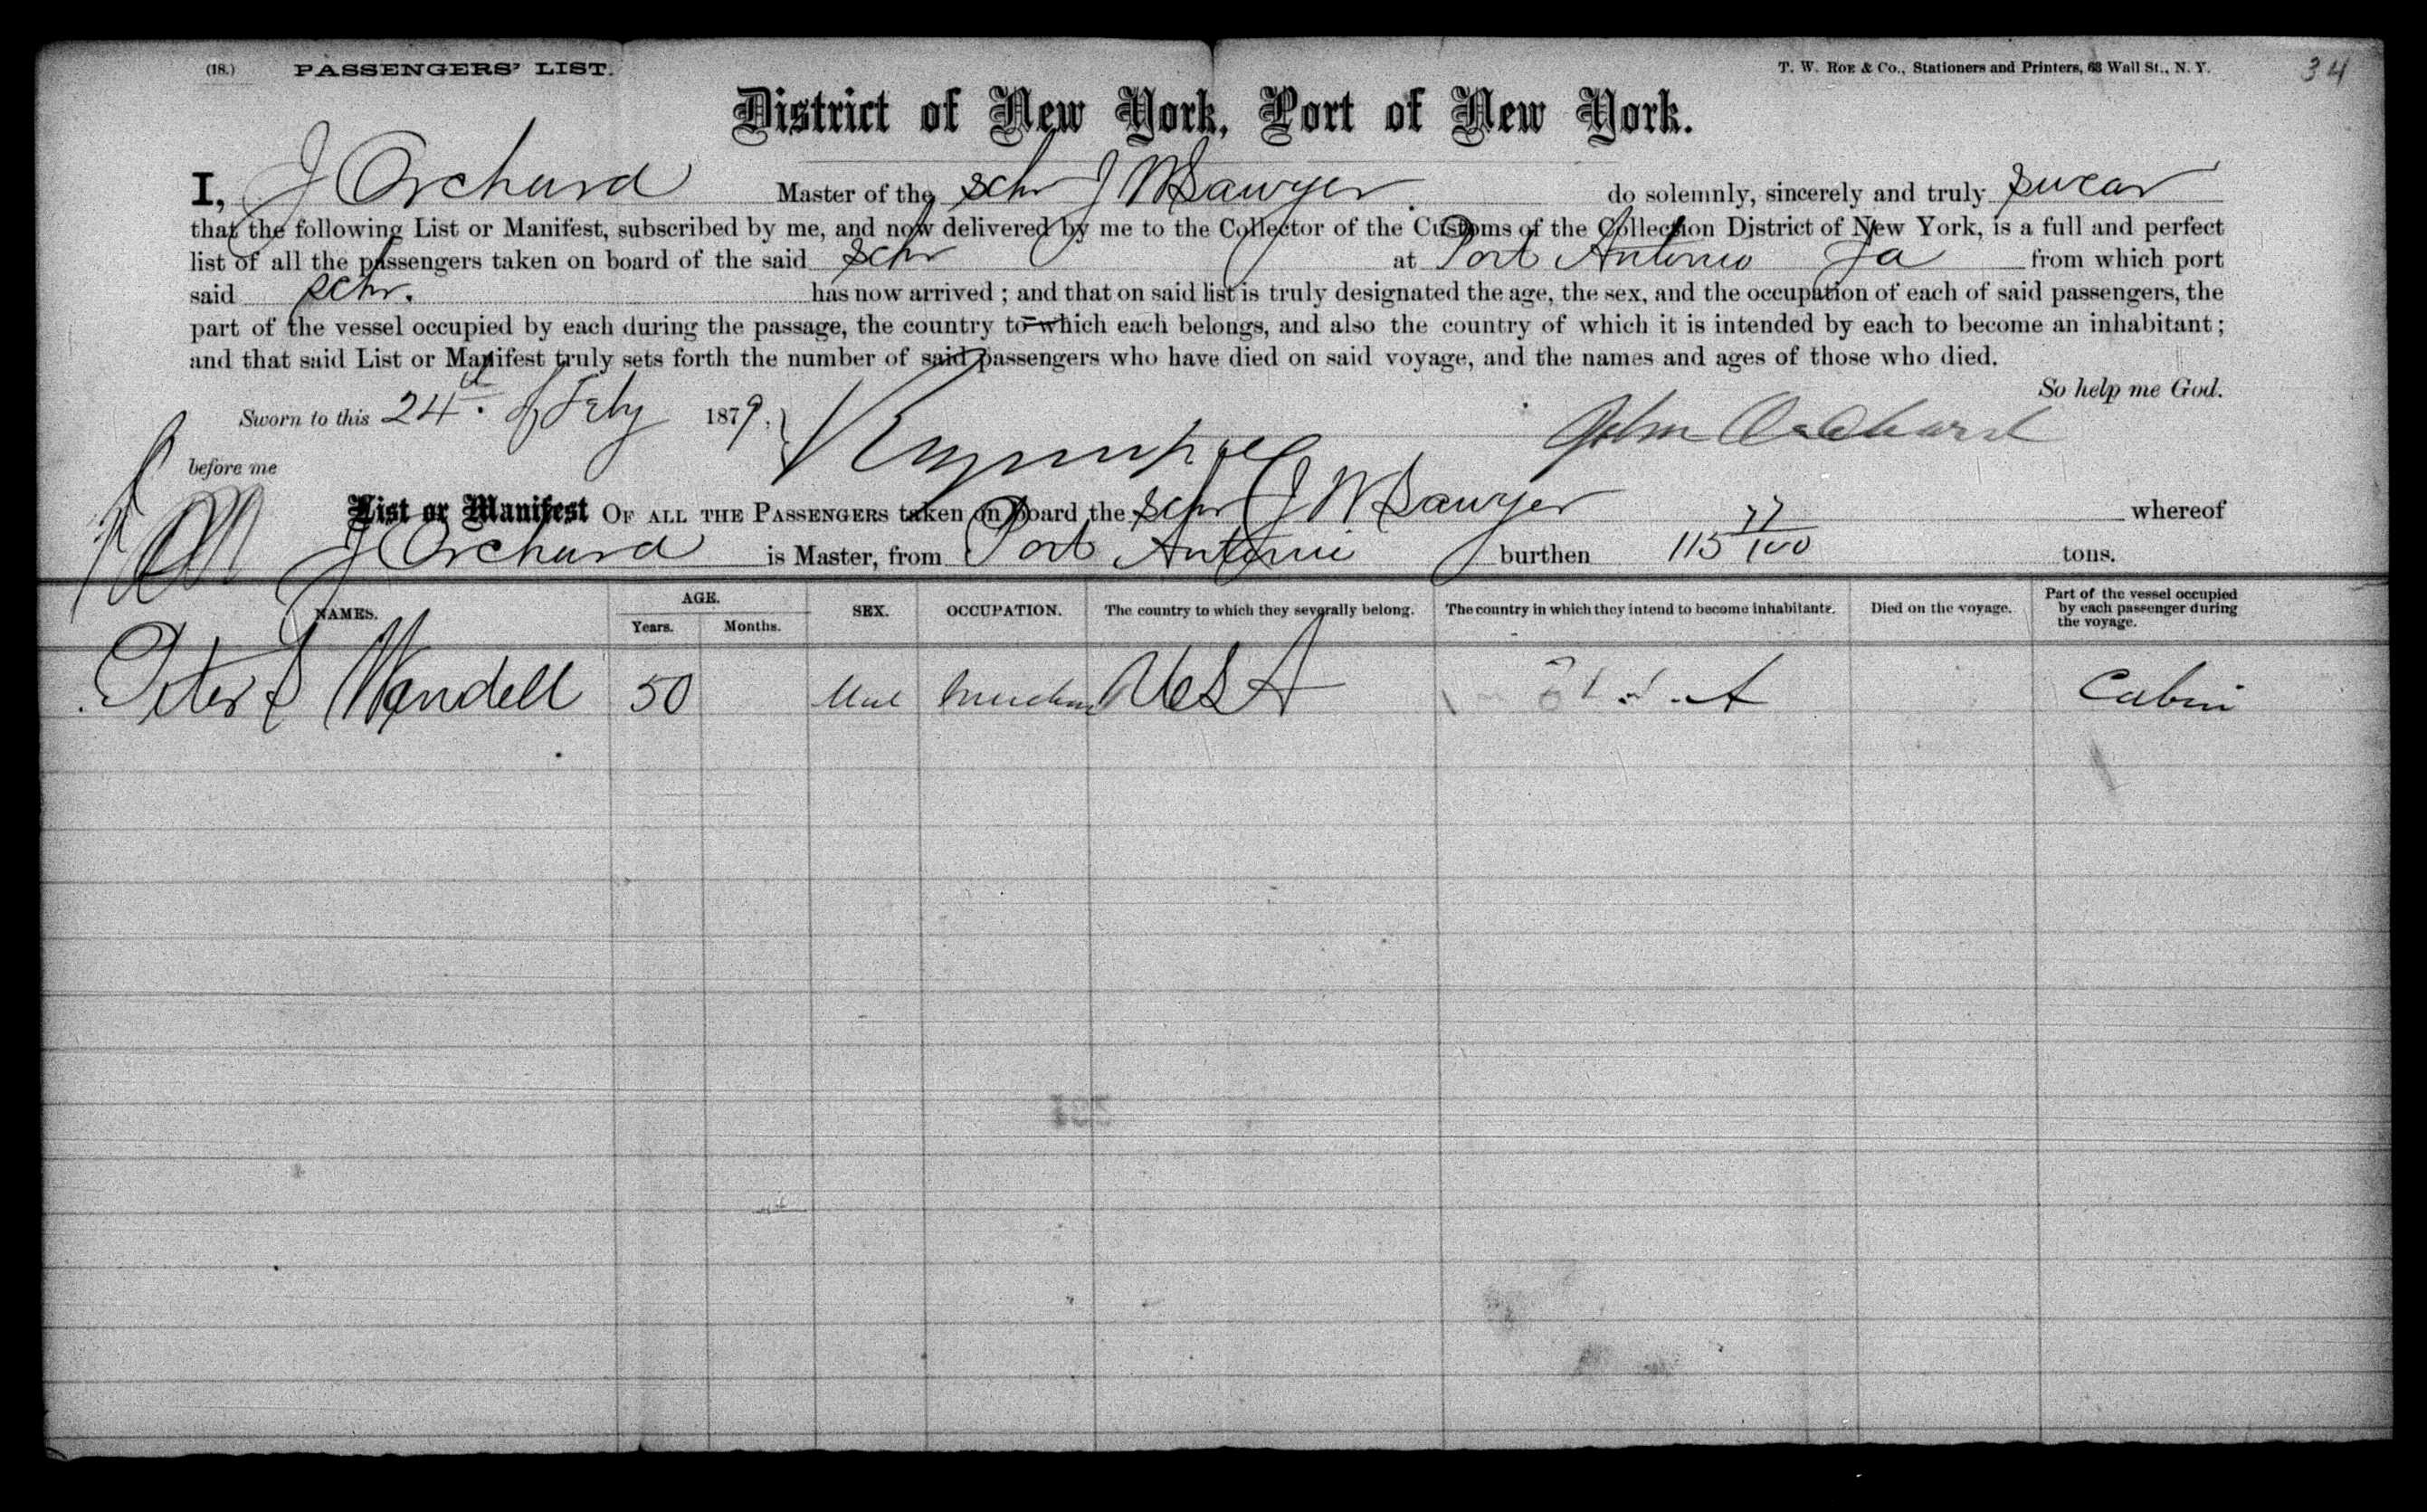 (18.) PASSENGERS' LIST. T. W. ROE & CO., Stationers and Printers, 63 Wall St., N. Y. 34
District of New York, Port of New York.
I, J Orchard Master of the schr J W Sawyer do solemnly, sincerely and truly swear
that the following List or Manifest, subscribed by me, and now delivered by me to the Collector of the Customs of the Collection District of New York, is a full and perfect
list of all the passengers taken on board of the said schr at Port Antonio Ja from which port
said schr. has now arrived; and that on said list is truly designated the age, the sex, and the occupation of each of said passengers, the
part of the vessel occupied by each during the passage, the country to which each belongs, and also the country of which it is intended by each to become an inhabitant;
and that said List or Manifest truly sets forth the number of said passengers who have died on said voyage, and the names and ages of those who died.
So help me God.
Sworn to this 24th of Feby 1879. John Orchard
before me
List or Manifest OF ALL THE PASSENGERS taken on board the schr J W Sawyer whereof
J Orchard is Master, from Port Antonio burthen 115 77/100 tons.
NAMES. AGE. Years. Months. SEX. OCCUPATION. The country to which they severally belong. The country in which they intend to become inhabitants. Died on the voyage. Part of the vessel occupied by each passenger during the voyage.
Peter S Wendell 50 Male U S A U.S.A Cabin